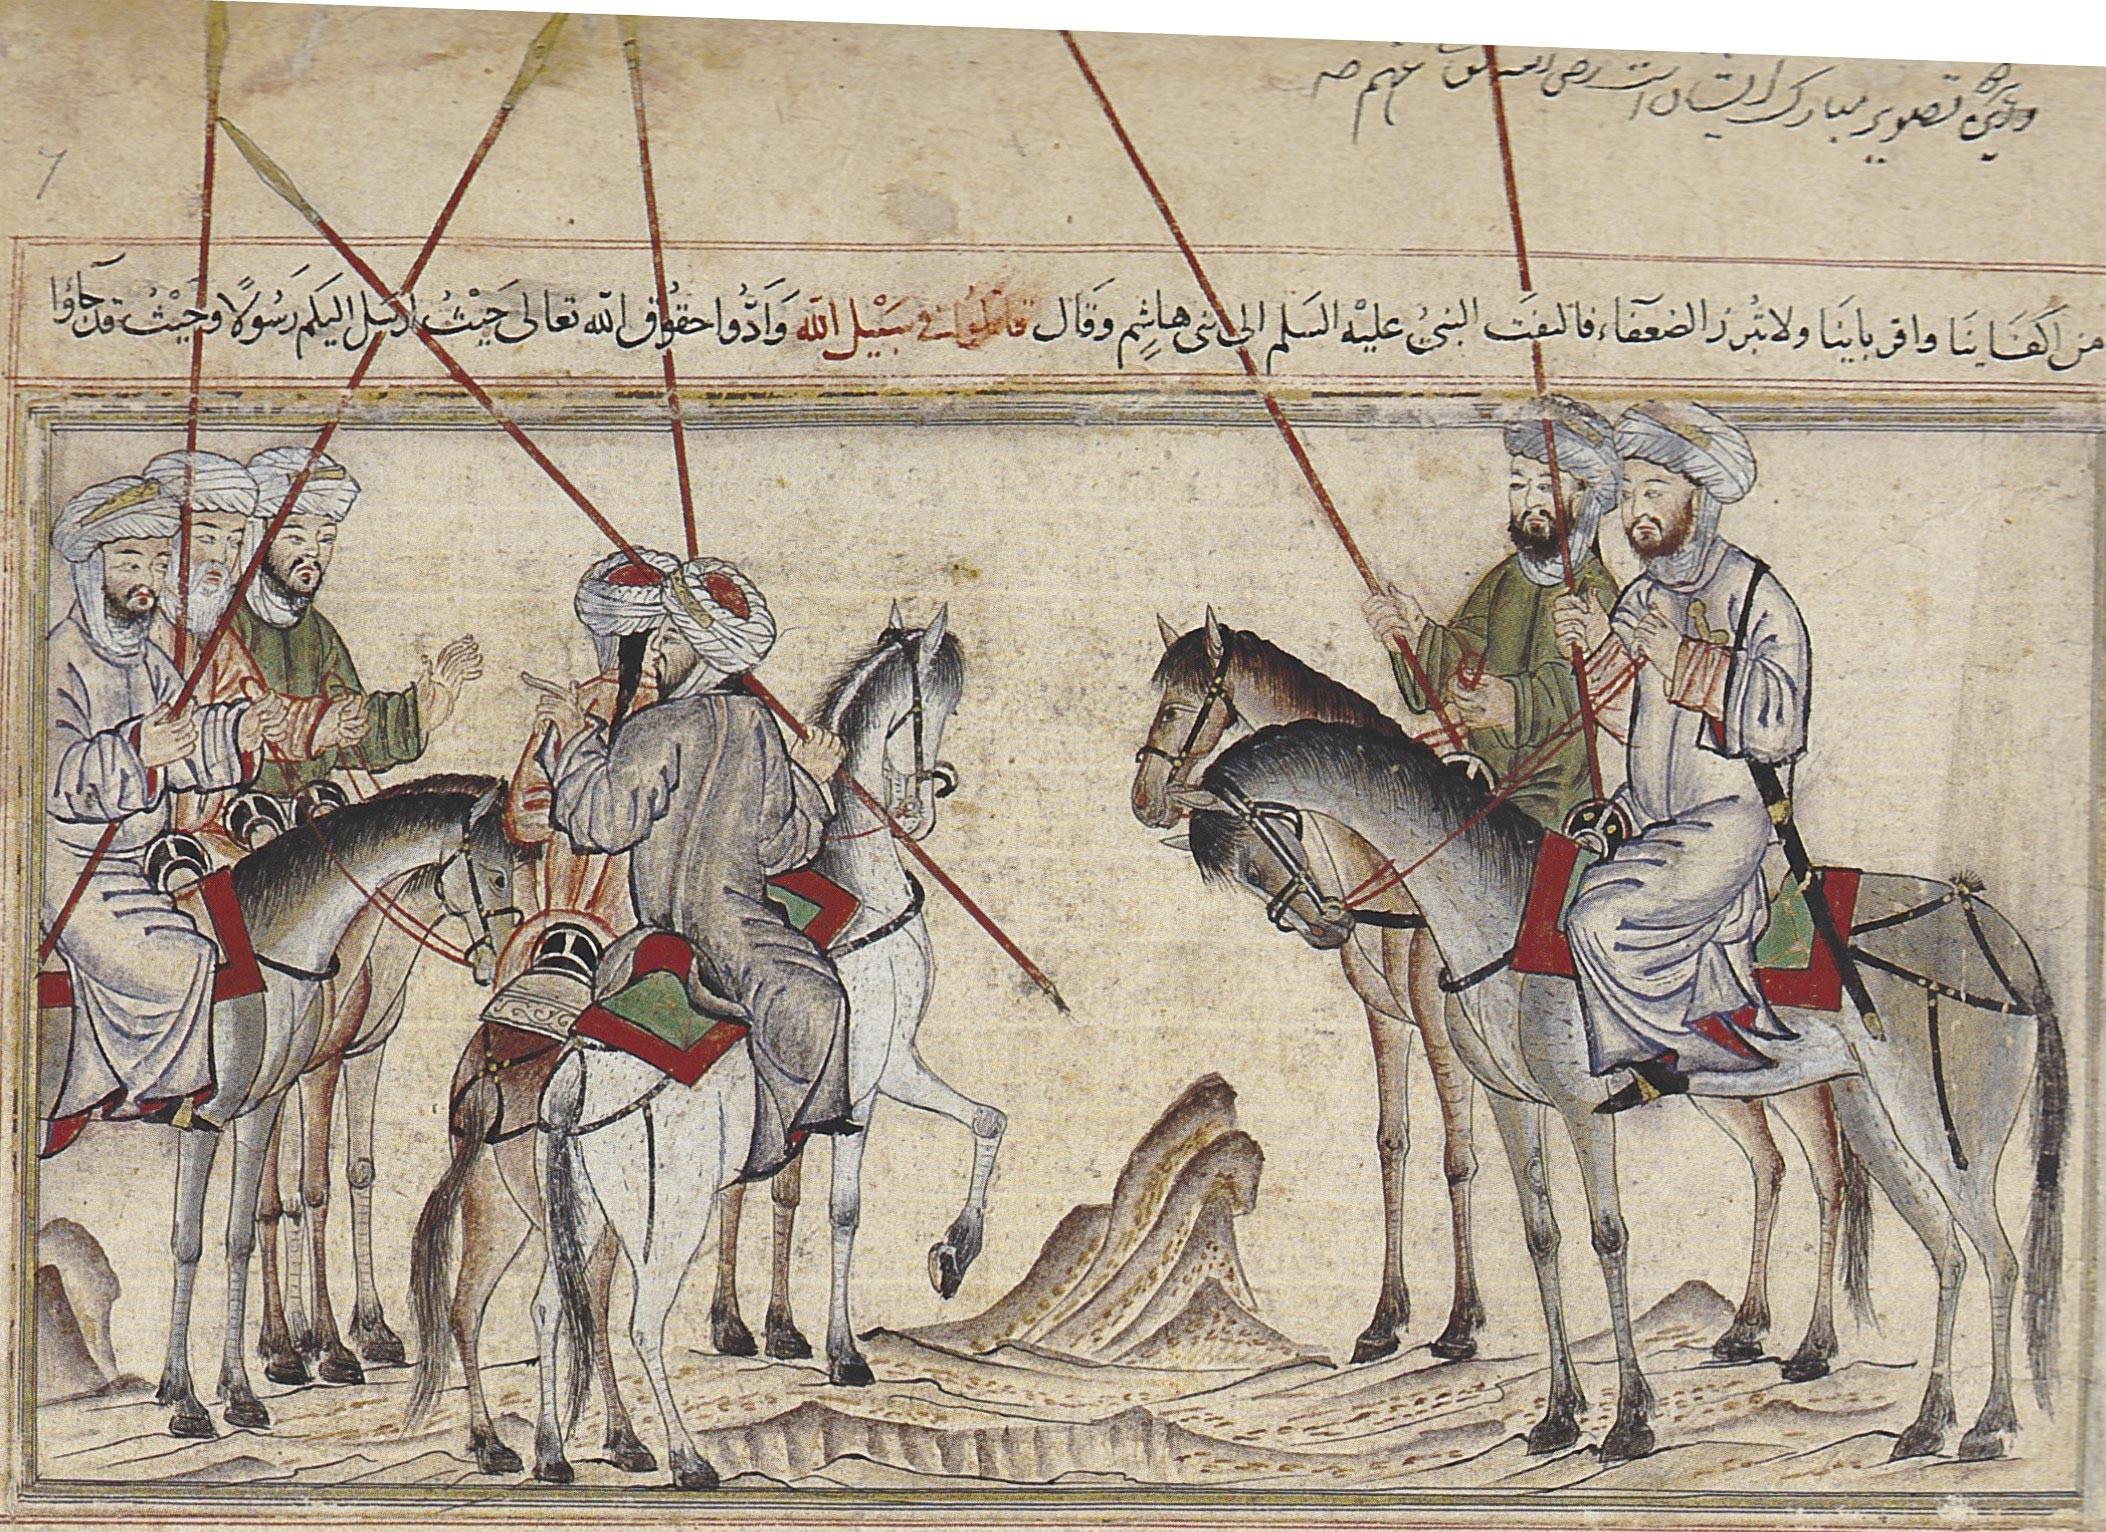 وغیره تصویر مبارک ایشان است رضی الله عنهم
من اكفاينا واقرباينا ولا تبرز الضعفاء فالتفت النبي عليه السلم الى بنى هاشم وقال قاتلوا فى سبيل الله وادوا حقوق الله تعالى حيث ارسل اليكم رسولا وحيث قد جاؤا